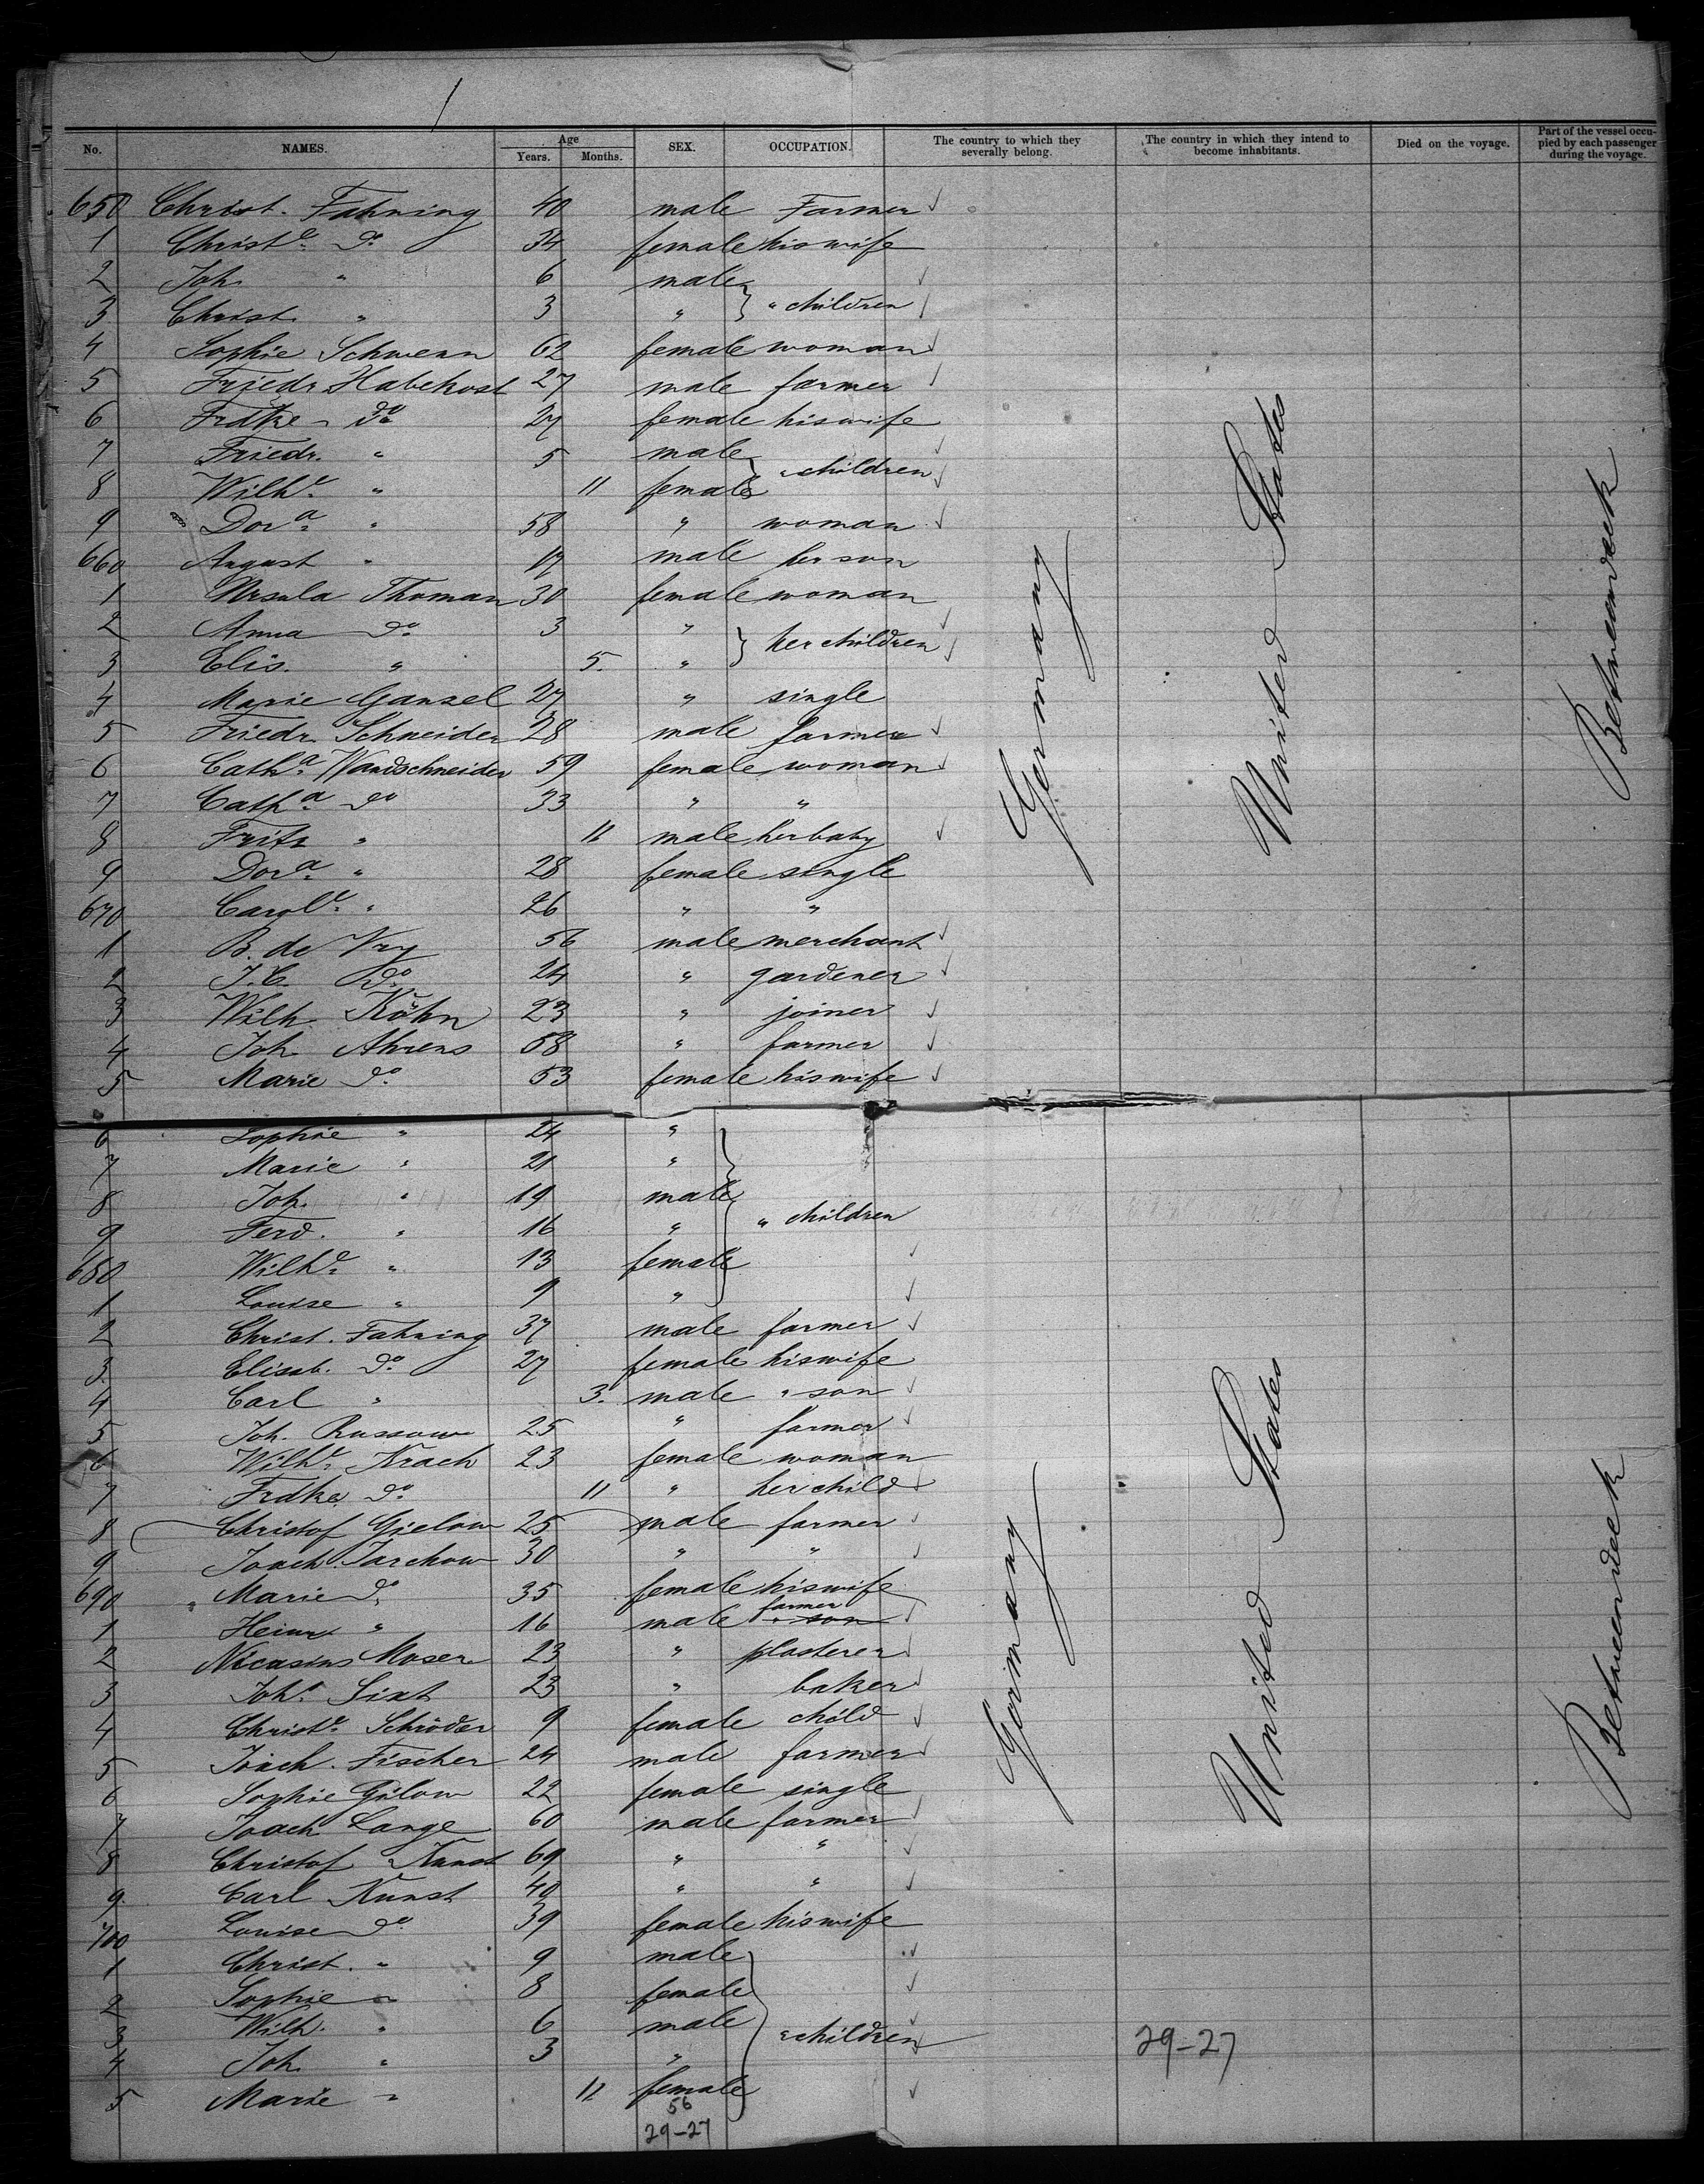 No. NAMES. Age Years. Months. SEX. OCCUPATION. The country to which they severally belong. The country in which they intend to become inhabitants. Died on the voyage. Part of the vessel occupied by each passenger during the voyage.
650 Christ. Fahning 40 male Farmer
1 Christe. do 34 female his wife
2 Joh. " 6 male
3 Christ. " 3 " } " children
4 Sophie Schwenn 62 female woman
5 Friedr. Habekost 27 male farmer
6 Frdke do 27 female his wife
7 Friedr. " 5 male
8 Wilhe. " 11 female } " children
9 Dora. " 58 " woman
660 August " 17 male her son
1 Ursula Thoman 30 female woman
2 Anna do 3 "
3 Elis. " 5. " } her children
4 Marie Gansel 27 " single
5 Friedr. Schneider 28 male farmer
6 Catha. Wandschneider 59 female woman
7 Catha. do 33 " "
8 Fritz " 11 male her baby
9 Dora. " 28 female single
670 Carole. " 26 " "
1 B. de Vry 56 male merchant
2 J. C. do 24 " gardener
3 Wilh. Köhn 23 " joiner
4 Joh. Ahrens 58 " farmer
5 Marie do 53 female his wife
Germany
United States
Betweendeck
6 Sophie " 24 "
7 Marie " 21 "
8 Joh. " 19 male
9 Ferd. " 16 " " children
680 Wilhe. " 13 female
1 Louise " 9 "
2 Christ. Fahning 37 male farmer
3. Elisab. do 27 female his wife
4 Carl " 3. male " son
5 Joh. Russow 25 " farmer
6 Wilhe. Krach 23 female woman
7 Frdke do 11 " her child
8 Christof Gielow 25 male farmer
9 Joach. Jarchow 30 " "
690 Marie do 35 female his wife
1 Heinr. " 16 male farmer " son
2 Nicasius Moser 23 " plasterer
3 Johs. Sixt 23 " baker
4 Christe. Schröder 9 female child
5 Joach. Fischer 24 male farmer
6 Sophie Gilow 22 female single
7 Joach Lange 60 male farmer
8 Christof Kunst 69 " "
9. Carl Kunst 40 " "
700 Louise do 39 female his wife
1 Christ. " 9 male
2 Sophie " 8 female
3 Wilh. " 6 male " children
4 Joh. " 3 "
5 Marie " 11 female
Germany
United States
Betweendeck
29-27
56
29-27